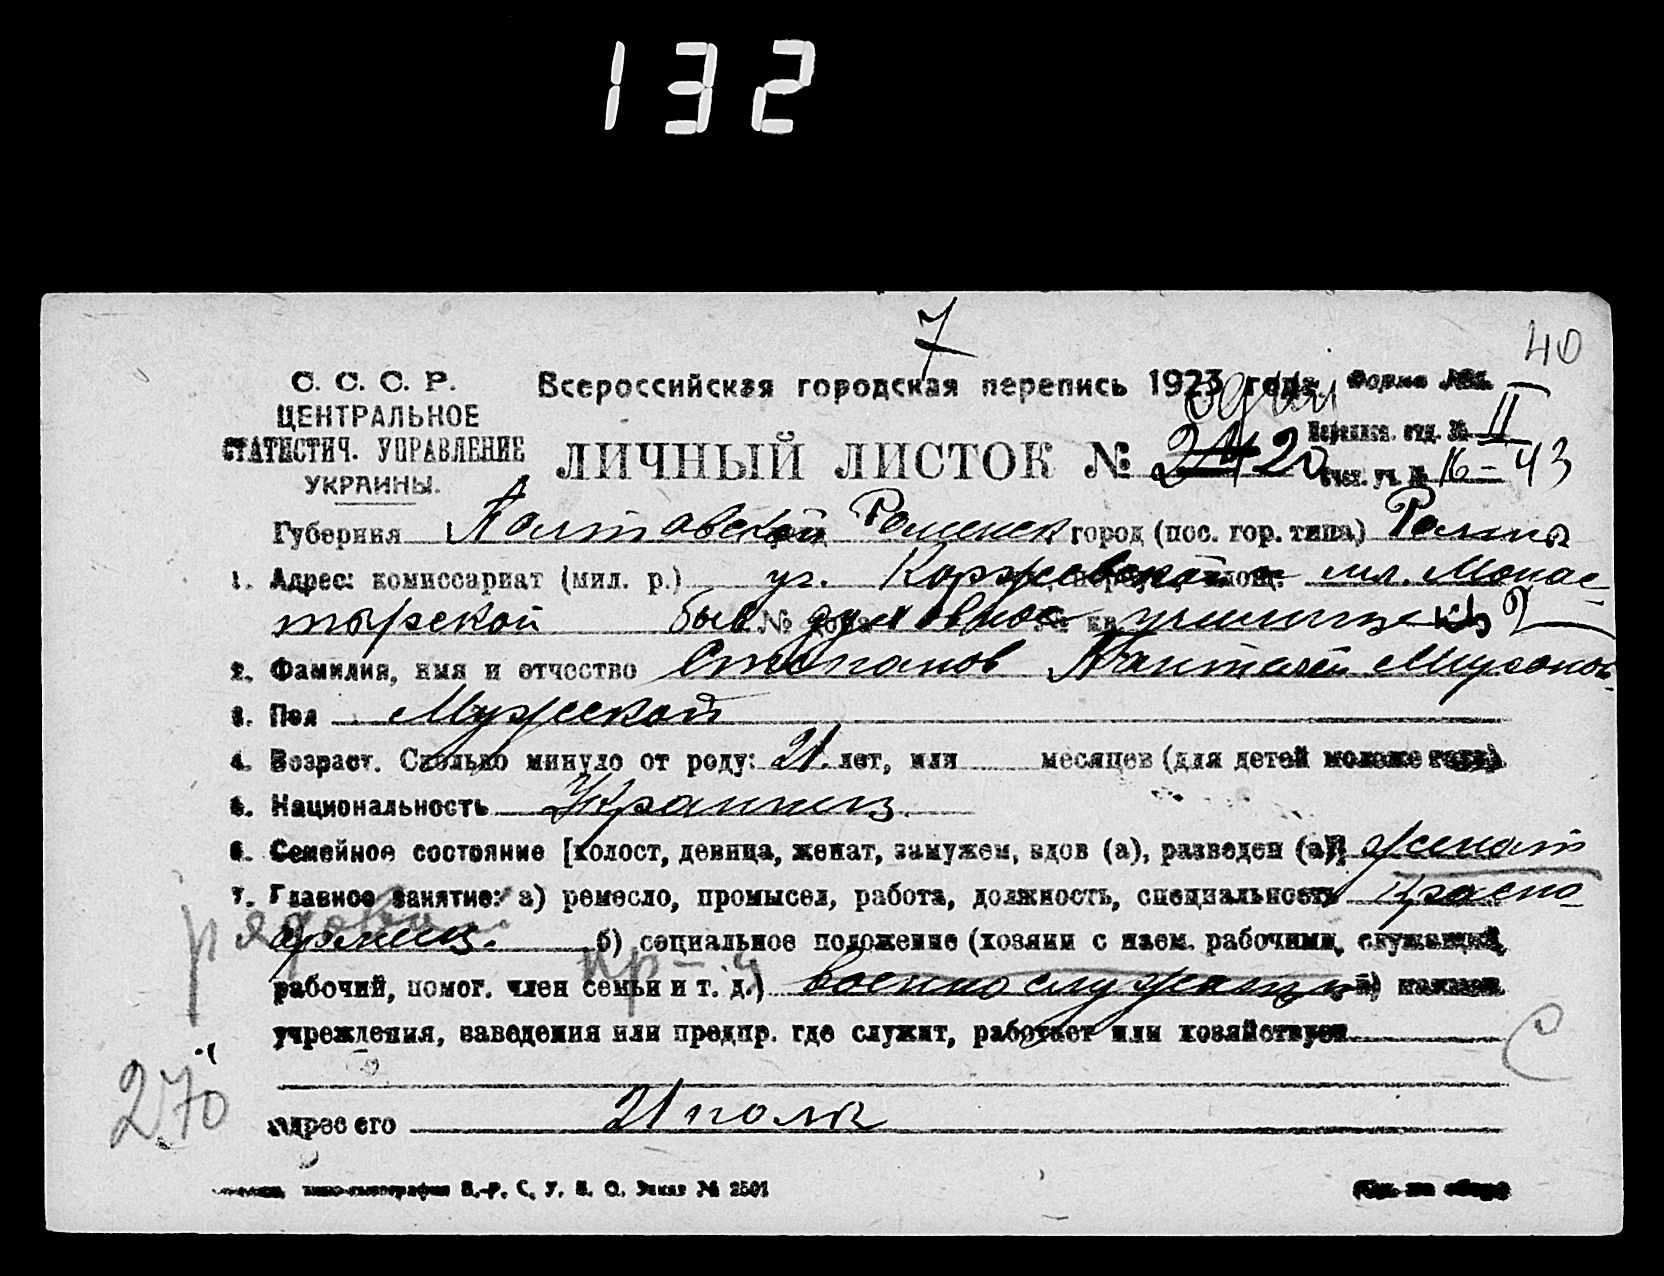 132
7
40
С. С. С. Р.
ЦЕНТРАЛЬНОЕ
СТАТИСТИЧ. УПРАВЛЕНИЕ
УКРАИНЫ.
Всероссийская городская перепись 1923 года. Форма
ЛИЧНЫЙ ЛИСТОК №
отд. № II
уч. № 16-43
Губерния Полтавской Роменск город (пос. гор. типа) Ромны
1. Адрес: комиссариат (мил. р.) уг. Коржевской пл. Монас-
тырской быв духовное училище кв
2. Фамилия, имя и отчество Степанов Пантелей
3. Пол Мужской
4. Возраст. Сколько минуло от роду: 21 лет, или месяцев (для детей моложе года)
5. Национальность Украинец
6. Семейное состояние [холост, девица, женат, замужем, вдов (а), разведен (а)] женат
7. Главное занятие: а) ремесло, промысел, работа, должность, специальность Красно-
армеец. б) социальное положение (хозяин с наем. рабочими, служащий,
рядовой
кр-ц
рабочий, помог. член семьи и т. д.) военнослужащий в)
учреждения, заведения или предпр. где служит, работает или хозяйствует
270
адрес его 21 полк
В.-Р. С. У. В. О. Заказ № 2501